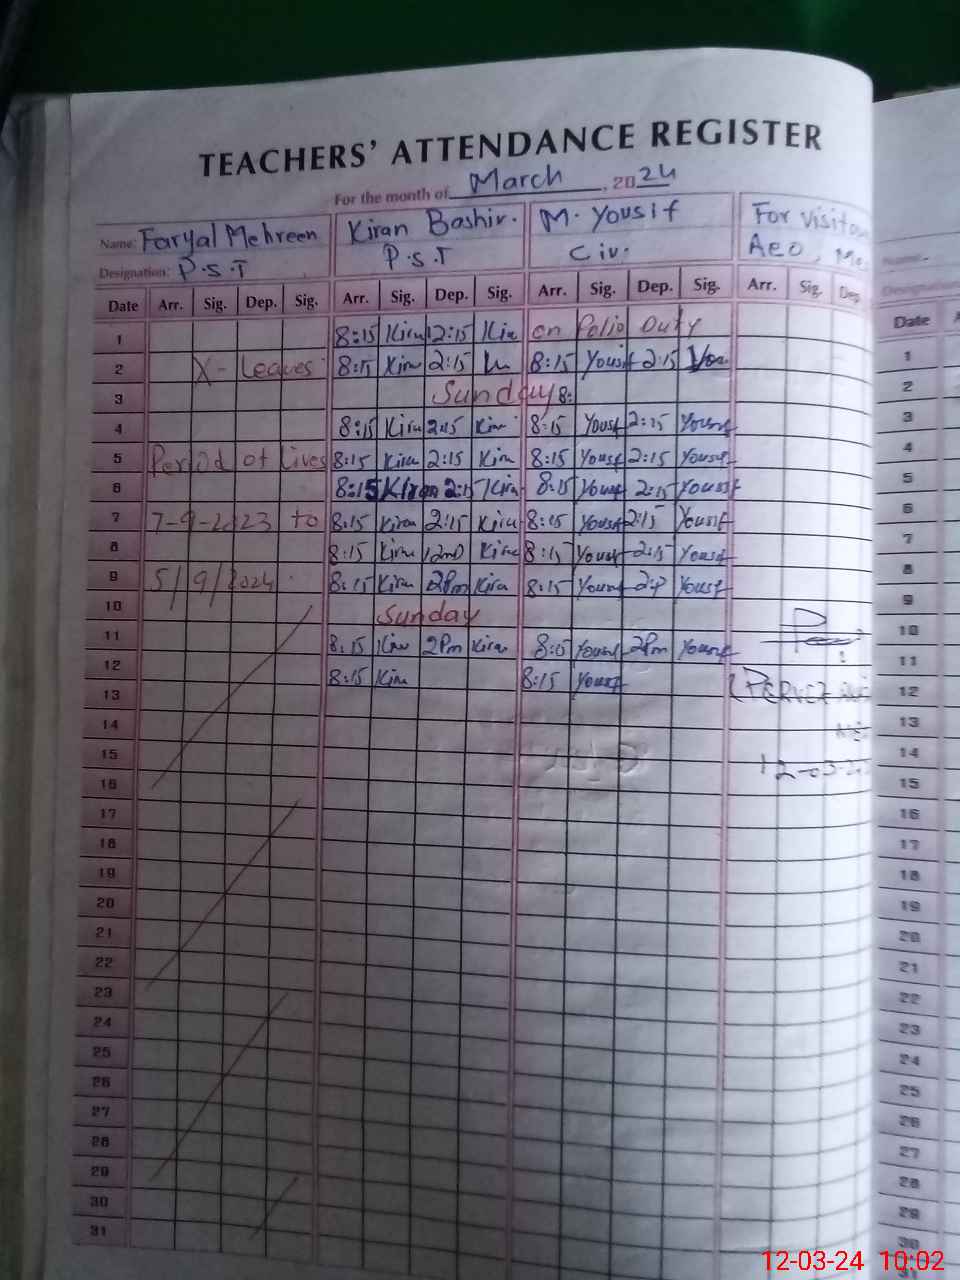 TEACHERS' ATTENDANCE REGISTER
For the month of March, 2024
Name: Faryal Mehreen Kiran Bashir. M. Yousif For Visito
Designation: P.S.T P.S.T Civ. AEO,
Date Arr. Sig. Dep. Sig. Arr. Sig. Dep. Sig. Arr. Sig. Dep. Sig. Arr. Sig. Dep Date
1 8:15 Kiran 12:15 Kiran on Polio Duty 1
2 X- Leaves 8:15 Kiran 2:15 8:15 Yousif 2:15 2
3 Sunday 8: 3
4 8:15 Kiran 2:15 Kiran 8:15 Yousf 2:15 Yousf 4
5 Period of lives 8:15 Kiran 2:15 Kiran 8:15 Yousf 2:15 Yousf 5
6 8:15 Kiran 2:15 Kiran 8:15 Yousf 2:15 Yousif 6
7 7-9-2023 to 8:15 Kiran 2:15 Kiran 8:15 Yousf 2:15 Yousif 7
8 8:15 Kiran 12 Kiran 8:15 Yousf 2:15 Yousf 8
9 5/9/2024 8:15 Kiran 2Pm Kiran 8:15 Yousf 2:P Yousf 9
10 Sunday 10
11 8:15 Kiran 2Pm Kiran 8:15 Yousf 2Pm Yousf 11
12 8:15 Kiran 8:15 Yousf 12
13 13
14 14
15 12-03-2 15
16 16
17 17
18 18
19 19
20 20
21 21
22 22
23 23
24 24
25 25
26 26
27 27
28 28
29 29
30 30
31 31
12-03-24 10:02